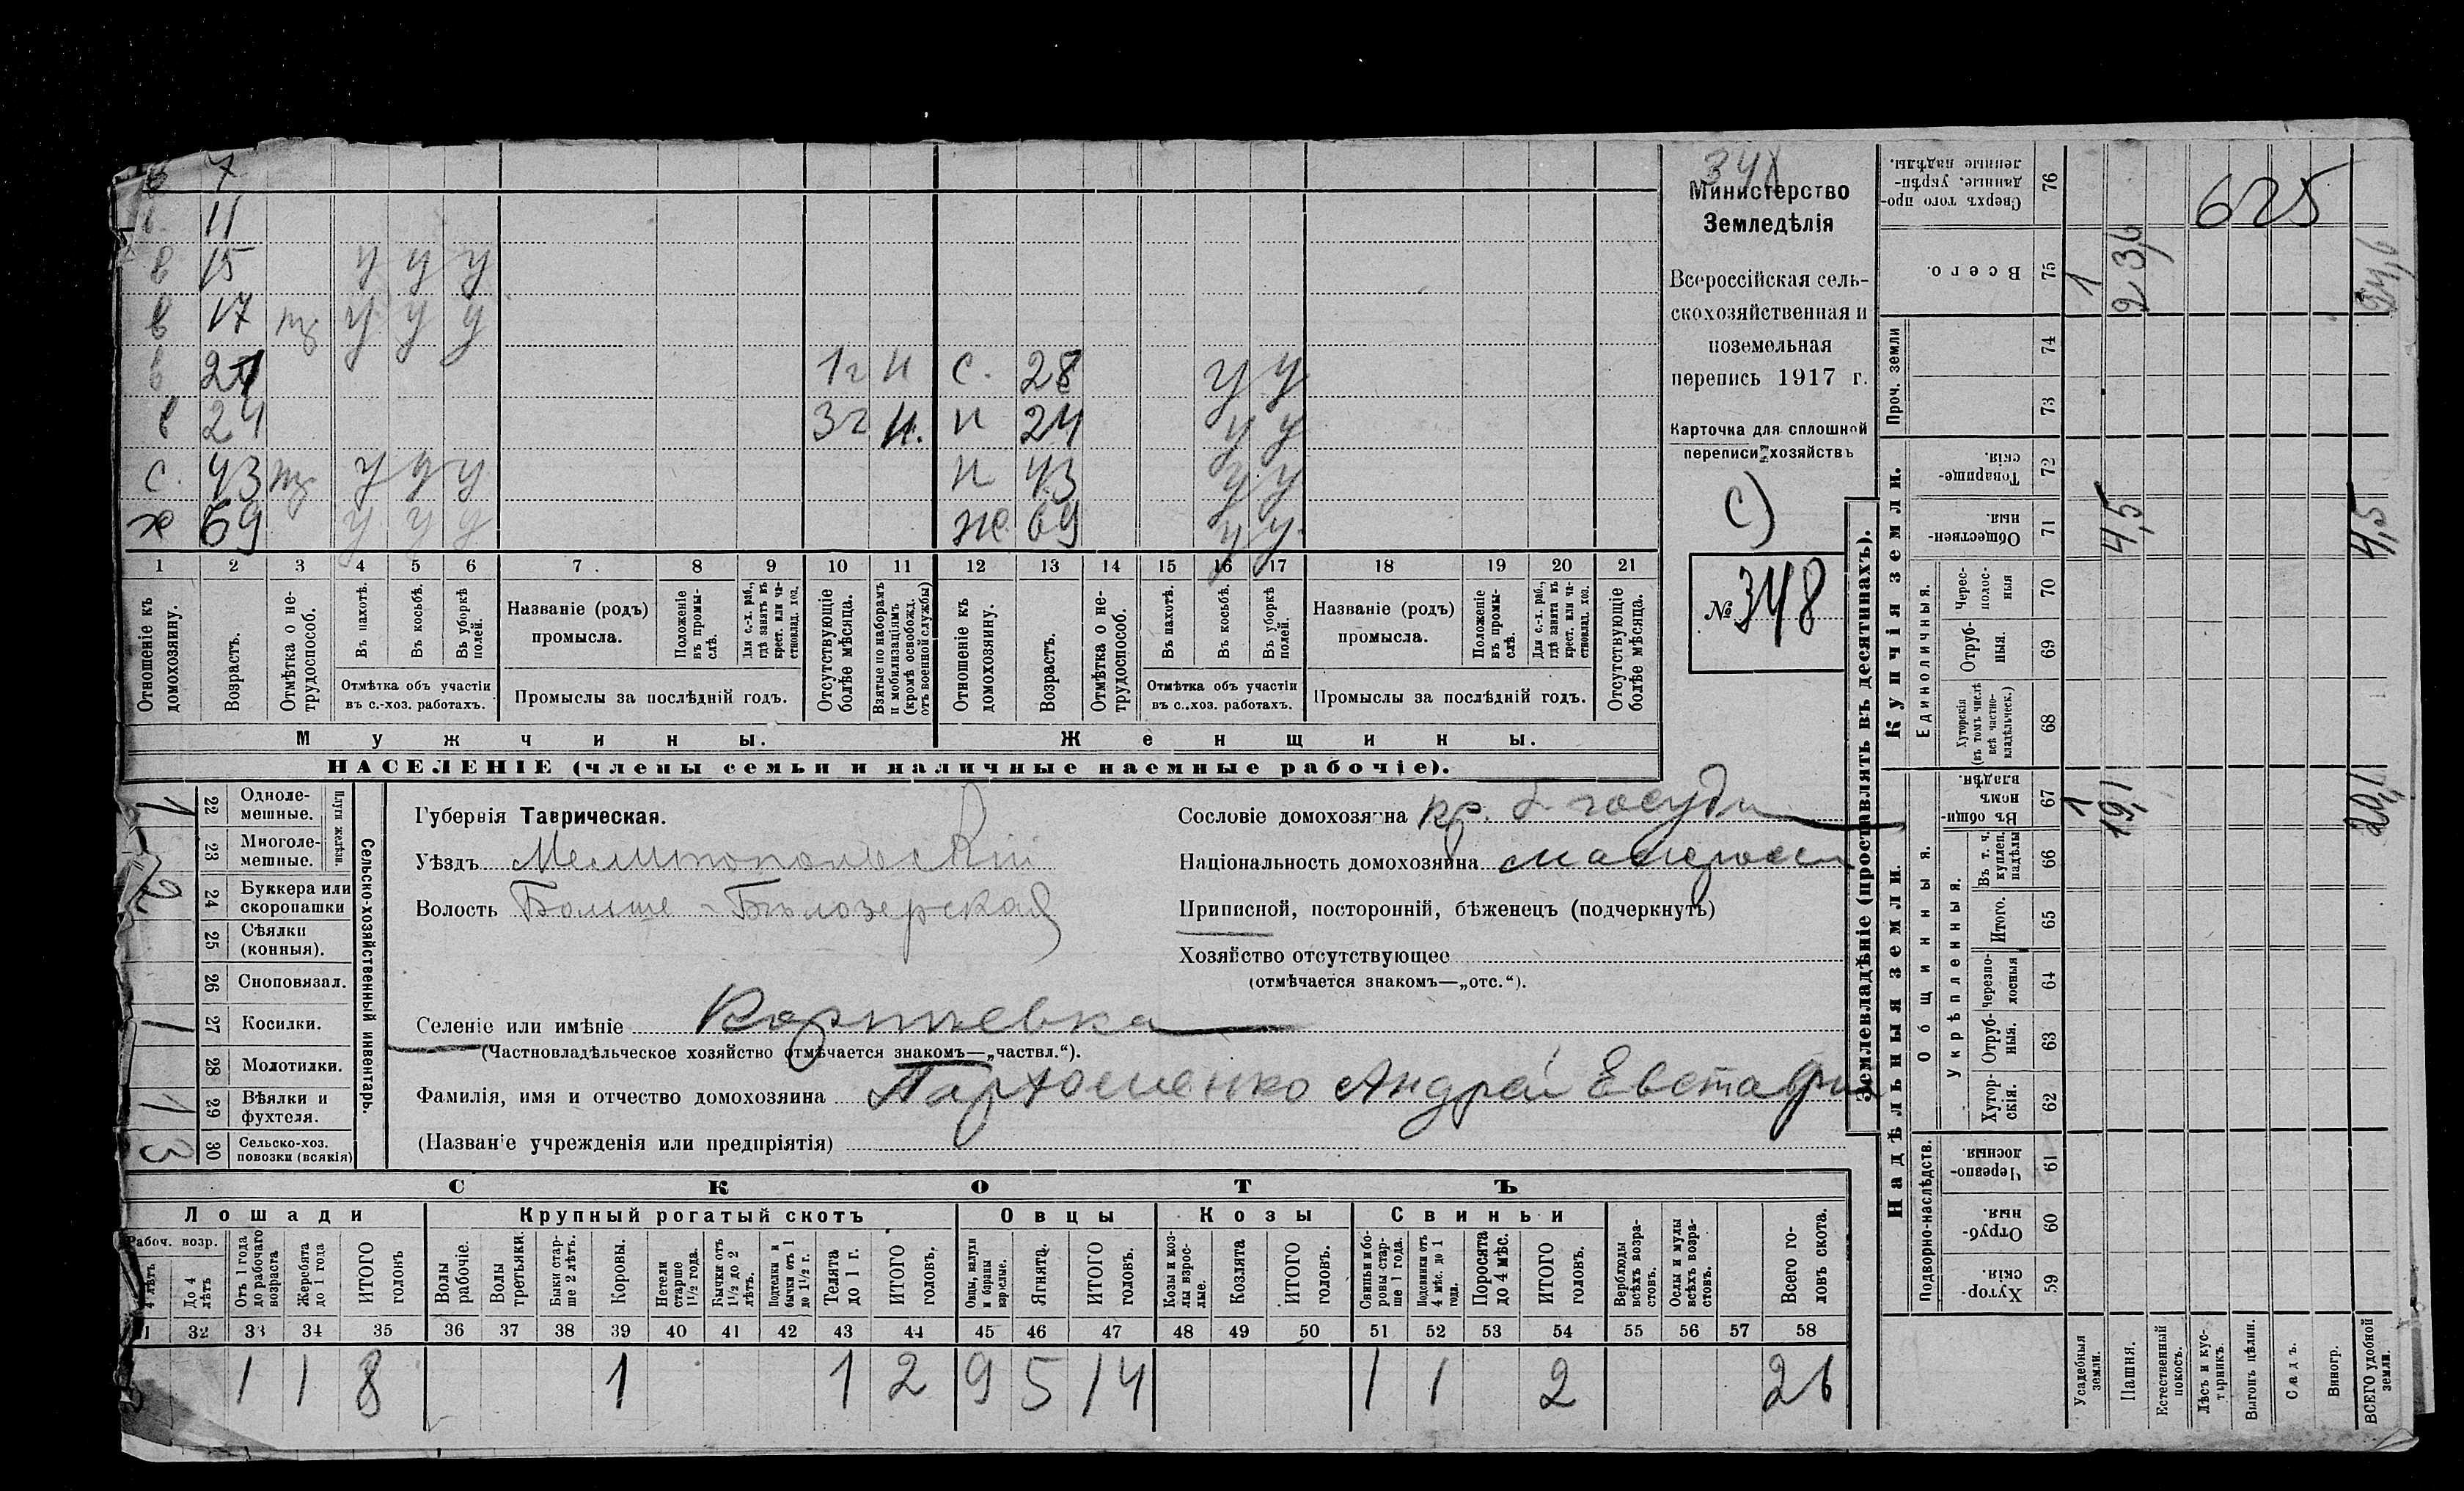 в 7
в 11
в 15 у у у
в 17 у у у
в 21 1г н с. 28 у у
в 24 3г н. н 24 у у
с. 43 у у у н 43 у у
х 69 у у у ж 69 у у
1 2 3 4 5 6 7 8 9 10 11 12 13 14 15 16 17 18 19 20 21
Отношеніе къ домохозяину.
Возрастъ.
Отмѣтка о нетрудоспособ.
Въ пахотѣ.
Въ косьбѣ.
Въ уборкѣ полей.
Отмѣтка объ участіи въ с.-хоз. работахъ.
Названіе (родъ) промысла.
Положеніе въ промыслѣ.
Для с.-х. раб., гдѣ занятъ въ крест. или частновлад. хоз.
Промыслы за послѣдній годъ.
Отсутствующіе болѣе мѣсяца.
Взятые по наборамъ и мобилизаціямъ (кромѣ освобожд. отъ военной службы)
Отношеніе къ домохозяину.
Возрастъ.
Отмѣтка о нетрудоспособ.
Въ пахотѣ.
Въ косьбѣ.
Въ уборкѣ полей.
Отмѣтка объ участіи въ с..хоз. работахъ.
Названіе (родъ) промысла.
Положеніе въ промыслѣ.
Для с.-х. раб., гдѣ занята въ крест. или частновлад. хоз.
Промыслы за послѣдній годъ.
Отсутствующіе болѣе мѣсяца.
Мужчины. Женщины.
НАСЕЛЕНІЕ (члены семьи и наличные наемные рабочіе).
Министерство
Земледѣлія
Всероссійская сель-
скохозяйственная и
поземельная
перепись 1917 г.
Карточка для сплошной
переписи хозяйствъ
С)
№ 348
Сельско-хозяйственный инвентарь.
Плуги желѣзн.
22 Одноле-мешные. 1
23 Многоле-мешные.
24 Буккера или скоропашки 2
25 Сѣялки (конныя).
26 Сноповязал.
27 Косилки. 1
28 Молотилки.
29 Вѣялки и фухтеля. 1
30 Сельско-хоз. повозки (всякія) 3
Губернія Таврическая.
Уѣздъ Мелитопольскій
Волость Больше-Бѣлозерская
Селеніе или имѣніе
(Частновладѣльческое хозяйство отмѣчается знакомъ—„частвл.“).
Фамилія, имя и отчество домохозяина Пархоменко Андрей Евстафи
(Названіе учрежденія или предпріятія)
Сословіе домохозяина кр. б. госуд
Національность домохозяина малоросс
Приписной, посторонній, бѣженецъ (подчеркнуть)
Хозяйство отсутствующее
(отмѣчается знакомъ—„отс.“).
СКОТЪ
Лошади Крупный рогатый скотъ Овцы Козы Свиньи
Рабоч. возр.
4 лѣтъ
До 4 лѣтъ
Отъ 1 года до рабочаго возраста
Жеребята до 1 года
ИТОГО головъ
Волы рабочіе.
Волы третьяки.
Быки старше 2 лѣтъ.
Коровы.
Нетели старше 1½ года.
Бычки отъ 1½ до 2 лѣтъ.
Подтелки и бычки отъ 1 до 1½ г.
Телята до 1 г.
ИТОГО головъ.
Овцы, валухи и бараны взрослые.
Ягнята.
ИТОГО головъ.
Козы и козлы взрослые.
Козлята
ИТОГО головъ.
Свиньи и боровы старше 1 года.
Подсвинки отъ 4 мѣс. до 1 года.
Поросята до 4 мѣс.
ИТОГО головъ.
Верблюды всѣхъ возрастовъ.
Ослы и мулы всѣхъ возрастовъ.
Всего головъ скота.
32 33 34 35 36 37 38 39 40 41 42 43 44 45 46 47 48 49 50 51 52 53 54 55 56 57 58
1 1 8 1 1 2 9 5 14 1 1 2 26
Землевладѣніе (проставлять въ десятинахъ).
Надѣльныя земли. Купчія земли.
Проч. земли
Подворно-наслѣдств.
Общинныя.
Укрѣпленныя.
Единоличныя.
Сверхъ того проданные, укрѣпленные надѣлы. 76
Всего. 75
74
73
Товарищескія. 72
Общественныя. 71
Чересполосныя 70
Отрубныя. 69
Хуторскія (въ томъ числѣ всѣ частновладѣльческ.) 68
Въ общинномъ владѣн. 67
Въ т. ч. куплен. надѣлы 66
Итого. 65
черезполосныя 64
Отрубныя. 63
Хуторскія. 62
Черезполосныя. 61
Отрубныя. 60
Хуторскія. 59
625
1 23,6 24,6
4,5 4,5
1 19,1 20,1
Усадебныя земли.
Пашня.
Естественный покосъ.
Лѣсъ и кустарникъ.
Выгонъ цѣлин.
Садъ.
Виногр.
ВСЕГО удобной земли.